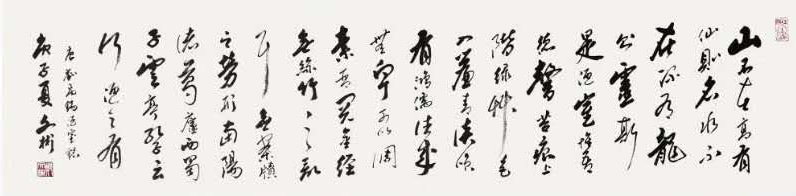 山不在高有
仙则名水不
在深有龍
则靈斯
是陋室惟吾
德馨苔痕上
階绿草色
入簾青談笑
有鸿儒往来
無白丁可以调
素琴阅金經
無絲竹之亂
耳無案牍
之勞形南陽
诸葛廬西蜀
子雲亭孔子云
何陋之有
唐刘禹锡陋室铭
庚子夏